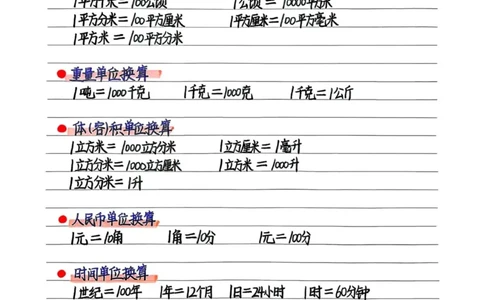 1平方千米=100公顷 1公顷=10000平方米
1平方分米=100平方厘米 1平方厘米=100平方毫米
1平方米=100平方分米
重量单位换算
1吨=1000千克 1千克=1000克 1千克=1公斤
体(容)积单位换算
1立方米=1000立方分米 1立方厘米=1毫升
1立方分米=1000立方厘米 1立方米=1000升
1立方分米=1升
人民币单位换算
1元=10角 1角=10分 1元=100分
时间单位换算
1世纪=100年 1年=12个月 1日=24小时 1时=60分钟